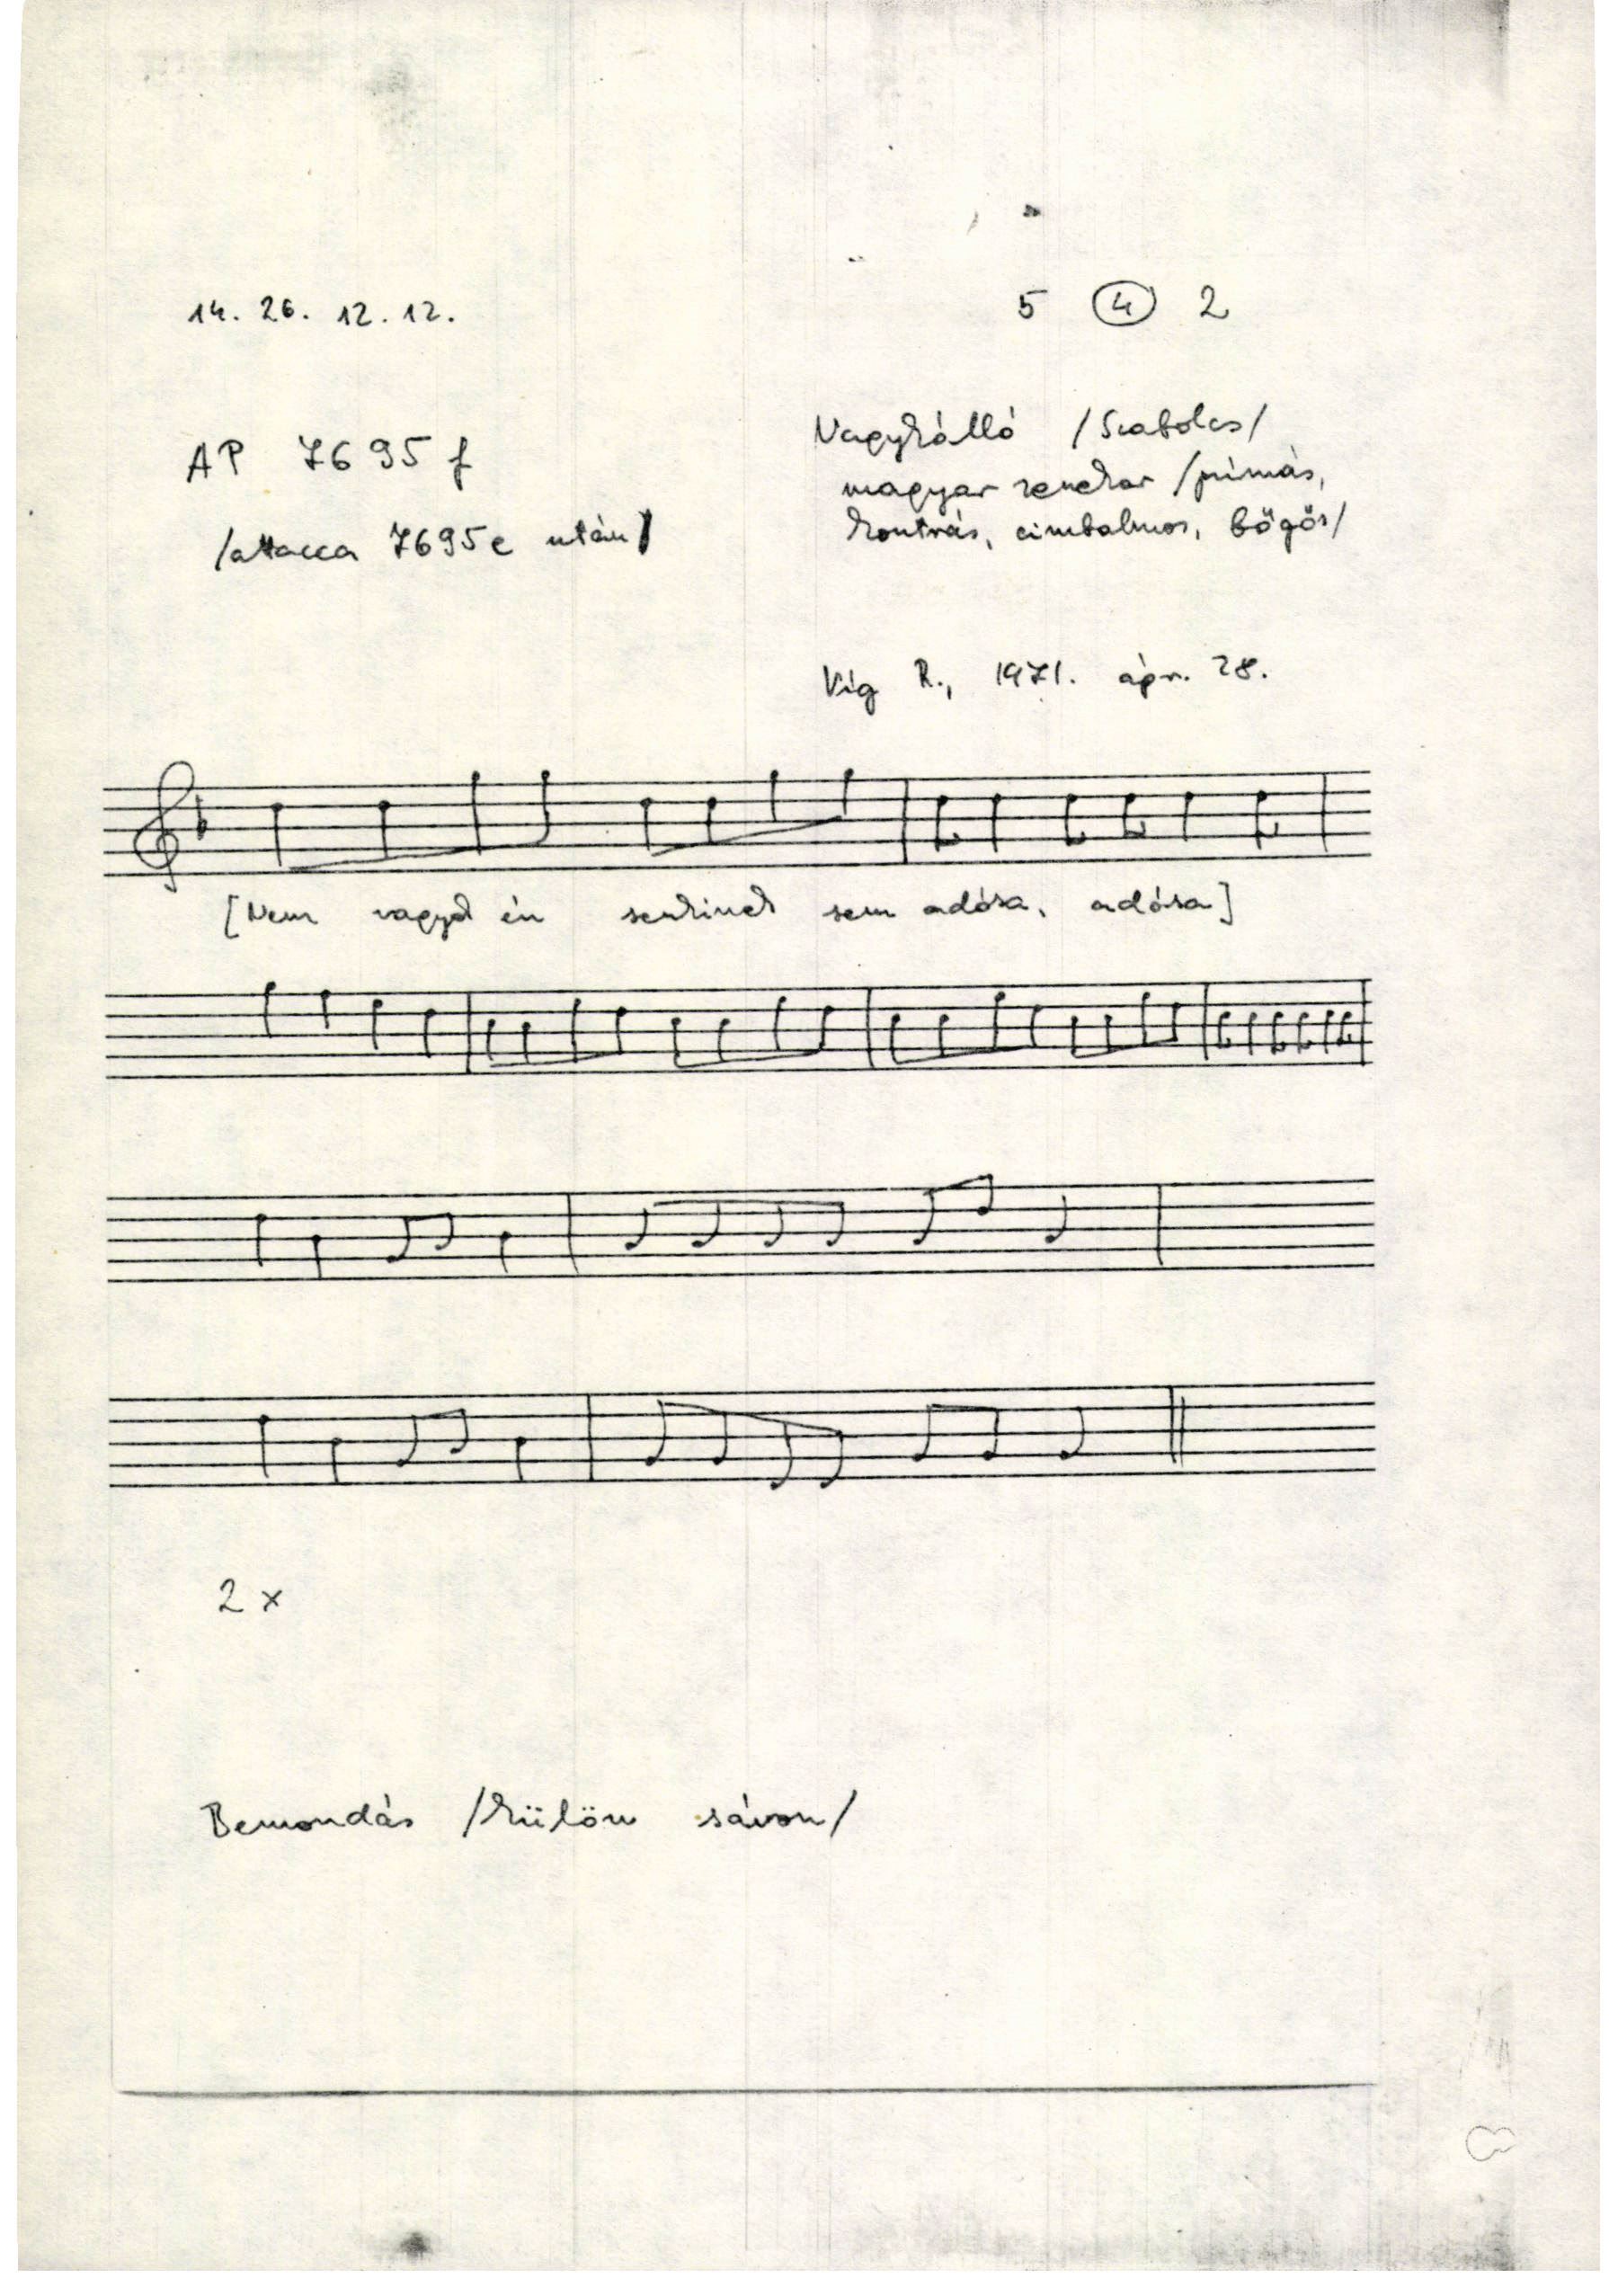 14. 26. 12. 12.
5 4 2
AP 7695 f
/attacca 7695 e után/
Nagykálló /Szabolcs/
magyar zenekar /prímás,
kontrás, cimbalmos, bőgős/
Víg R., 1971. ápr. 28.
[Nem vagyok én senkinek sem adósa, adósa]
2 x
Bemondás /külön sávon/